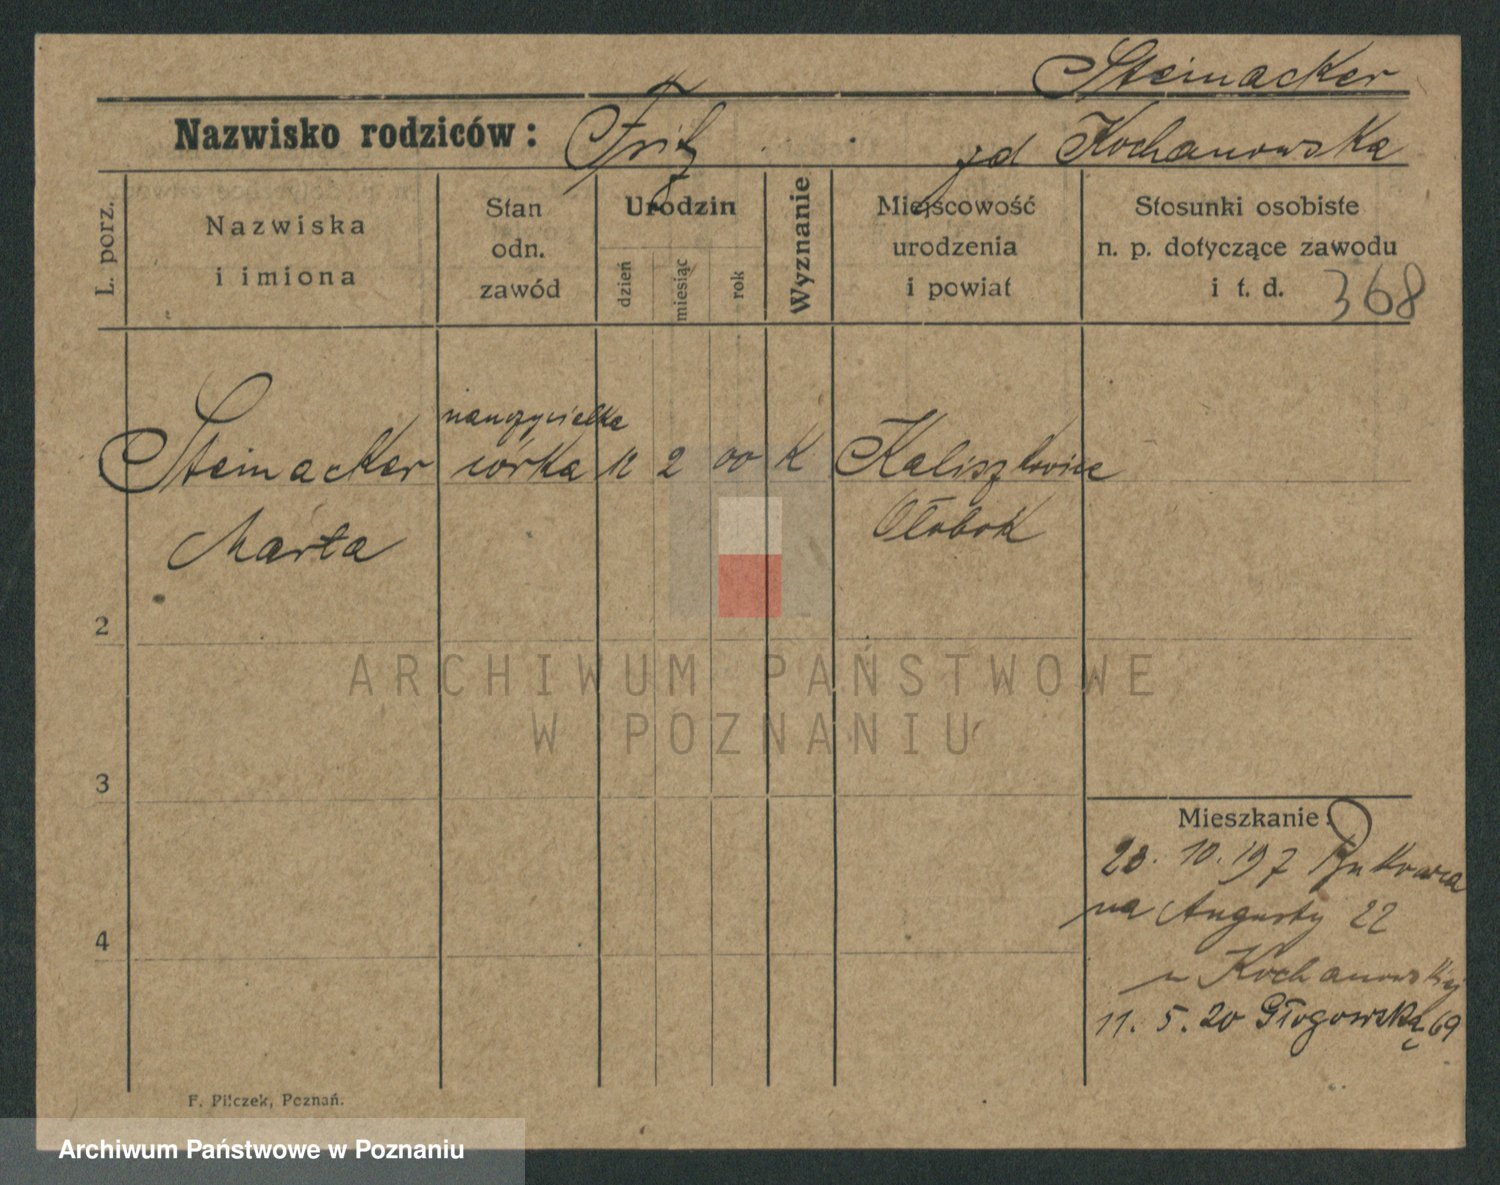 Steinacker
Nazwisko rodziców: Fritz zd Kochanowska
L. porz.
Nazwiska
i imiona
Stan
odn.
zawód
Urodzin
dzień
miesiąc
rok
Wyznanie
Miejscowość
urodzenia
i powiat
Stosunki osobiste
n. p. dotyczące zawodu
i t. d. 368
nauczycielka
Steinacker córka 12 2 00 K Kaliszkowice
Marta Ołobok
2
ARCHIWUM PAŃSTWOWE
W POZNANIU
3
Mieszkanie:
28. 10. 197
na Augusty 22
u Kochanowskiej
4
11. 5. 20 Głogowska 69
F. Pilczek, Poznań.
Archiwum Państwowe w Poznaniu